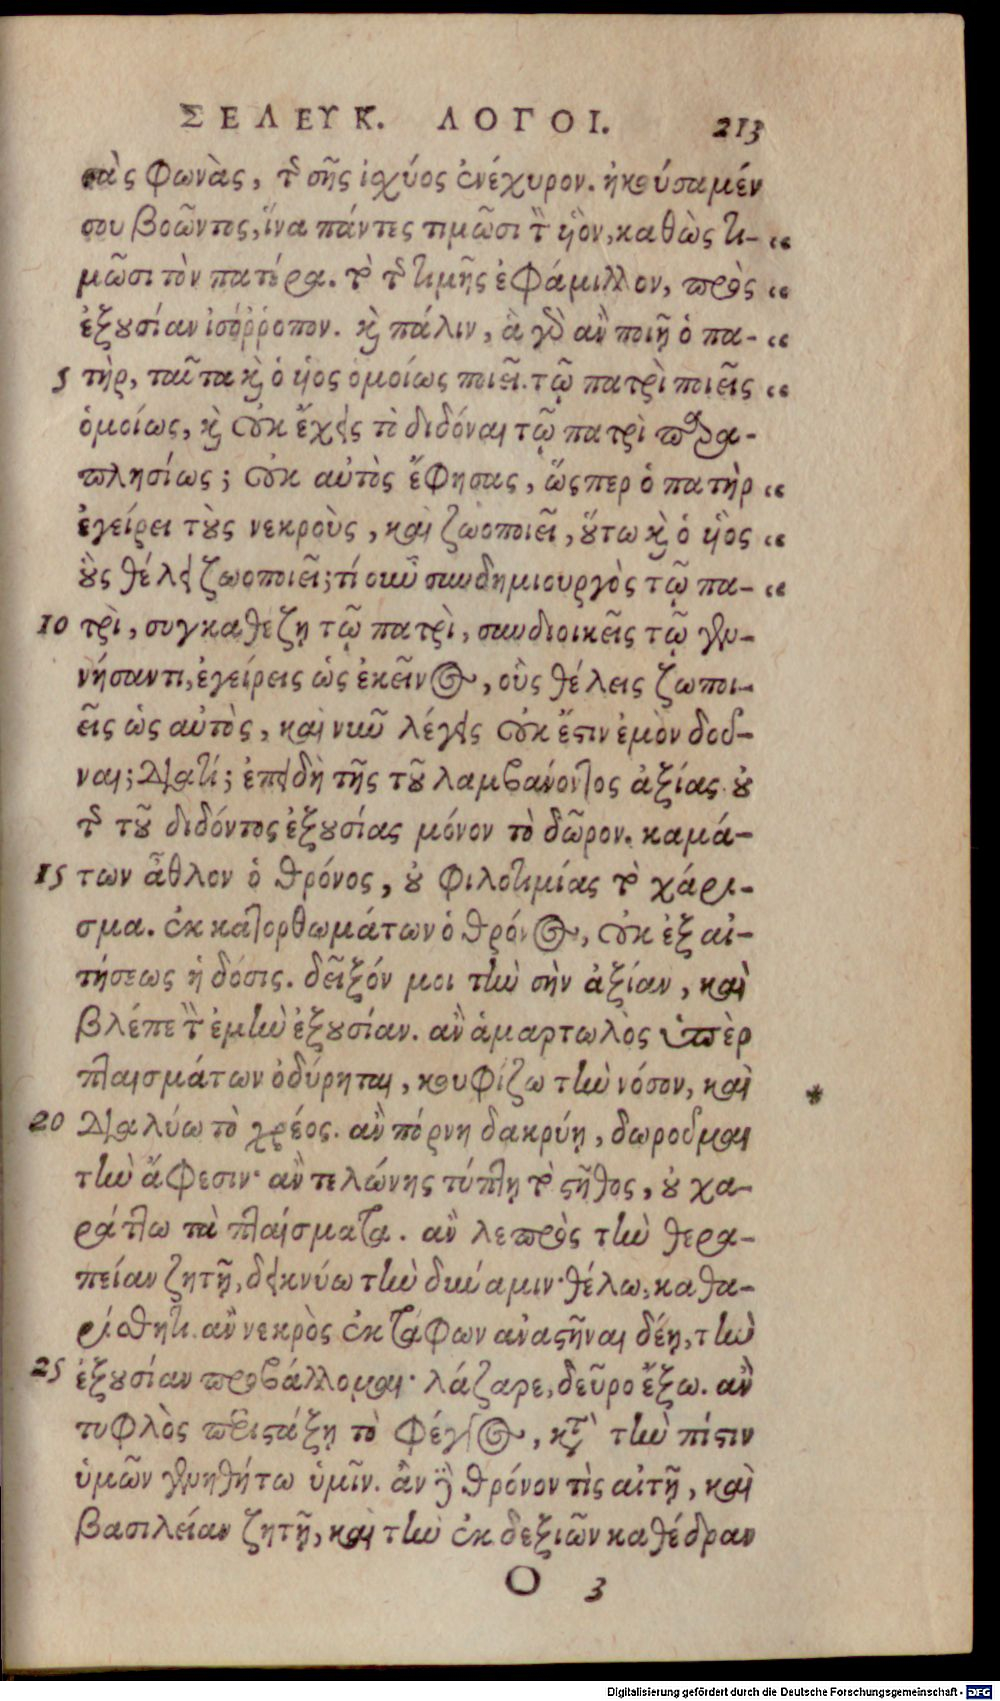 ΣΕΛΕΥΚ. ΛΟΓΟΙ. 213
σὰς φωνὰς, τῆς σῆς ἰχύος ἐνέχυρον. ἠκούσαμέν
σου βοῶντος, ἵνα πάντες τιμῶσι τὸν ὑὸν, καθὼς τι- “
μῶσι τὸν πατέρα. τὸ τῆς τιμῆς ἐφάμιλλον, πρὸς “
ἐξουσίαν ἰσόῤῥοπον. καὶ πάλιν, ἃ γὰρ ἂν ποιῇ ὁ πα- “
5 τὴρ, ταῦτα καὶ ὁ ὑὸς ὁμοίως ποιεῖ. τῷ πατρὶ ποιεῖς “
ὁμοίως, καὶ οὐκ ἔχεις τὸ διδόναι τῷ πατρὶ παρα-
πλησίως; οὐκ αὐτὸς ἔφησας, ὥσπερ ὁ πατὴρ “
ἐγείρει τοὺς νεκροὺς, καὶ ζωοποιεῖ, οὕτω καὶ ὁ ὑὸς “
οὓς θέλει ζωοποιεῖ; τί οὖν συνδημιουργὸς τῷ πα- “
10 τρὶ, συγκαθέζῃ τῷ πατρὶ, συνδιοικεῖς τῷ γεν-
νήσαντι, ἐγείρεις ὡς ἐκεῖνος, οὓς θέλεις ζωποι-
εῖς ὡς αὐτὸς, καὶ νῦν λέγεις οὐκ ἔστιν ἐμὸν δοῦ-
ναι; διατί; ἐπειδὴ τῆς τοῦ λαμβάνοντος ἀξίας· οὐ
τῆς τοῦ διδόντος ἐξουσίας μόνον τὸ δῶρον. καμά-
15 των ἆθλον ὁ θρόνος, οὐ φιλοτιμίας τὸ χάρι-
σμα. ἐκ κατορθωμάτων ὁ θρόνος, οὐκ ἐξ αἰ-
τήσεως ἡ δόσις. δεῖξόν μοι τὴν σὴν ἀξίαν, καὶ
βλέπε τὴν ἐμὴν ἐξουσίαν. ἂν ἁμαρτωλὸς ὑπὲρ
πταισμάτων ὀδύρηται, κουφίζω τὴν νόσον, καὶ *
20 διαλύω τὸ χρέος. ἂν πόρνη δακρύῃ, δωροῦμαι
τὴν ἄφεσιν· ἂν τελώνης τύπτῃ τὸ στῆθος, οὐ χα-
ράττω τὰ πταίσματα. ἂν λεπρὸς τὴν θερα-
πείαν ζητῇ, δεικνύω τὴν δύναμιν· θέλω, καθα-
ρίσθητι. ἂν νεκρὸς ἐκ τάφων ἀναστῆναι δέῃ, τὴν
25 ἐξουσίαν προβάλλομαι· λάζαρε, δεῦρο ἔξω. ἂν
τυφλὸς περιστάξῃ τὸ φέγγος, κατὰ τὴν πίστιν
ὑμῶν γενηθήτω ὑμῖν. ἂν δὲ θρόνον τὶς αἰτῇ, καὶ
βασιλείαν ζητῇ, καὶ τὴν ἐκ δεξιῶν καθέδραν
O 3
Digitalisierung gefördert durch die Deutsche Forschungsgemeinschaft - DFG